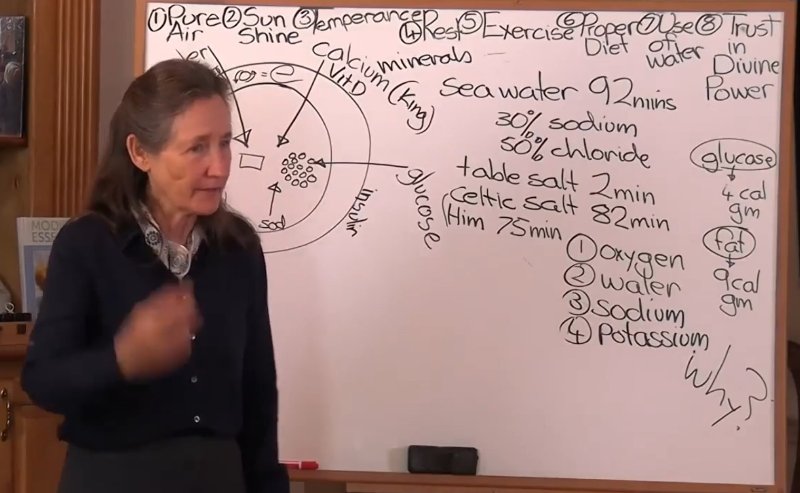 ① Pure Air ② Sun Shine ③ Temperance ④ Rest ⑤ Exercise ⑥ Proper Diet ⑦ Use of water ⑧ Trust in Divine Power
Calcium (King)
Vit D
minerals -
glucose
insulin
sod
Sea water 92 mins
30% sodium
50% chloride
table salt 2min
Celtic salt 82min
(Him 75min
① oxygen
② water
③ Sodium
④ Potassium
glucose
4 cal
gm
fat
9cal
gm
Why?